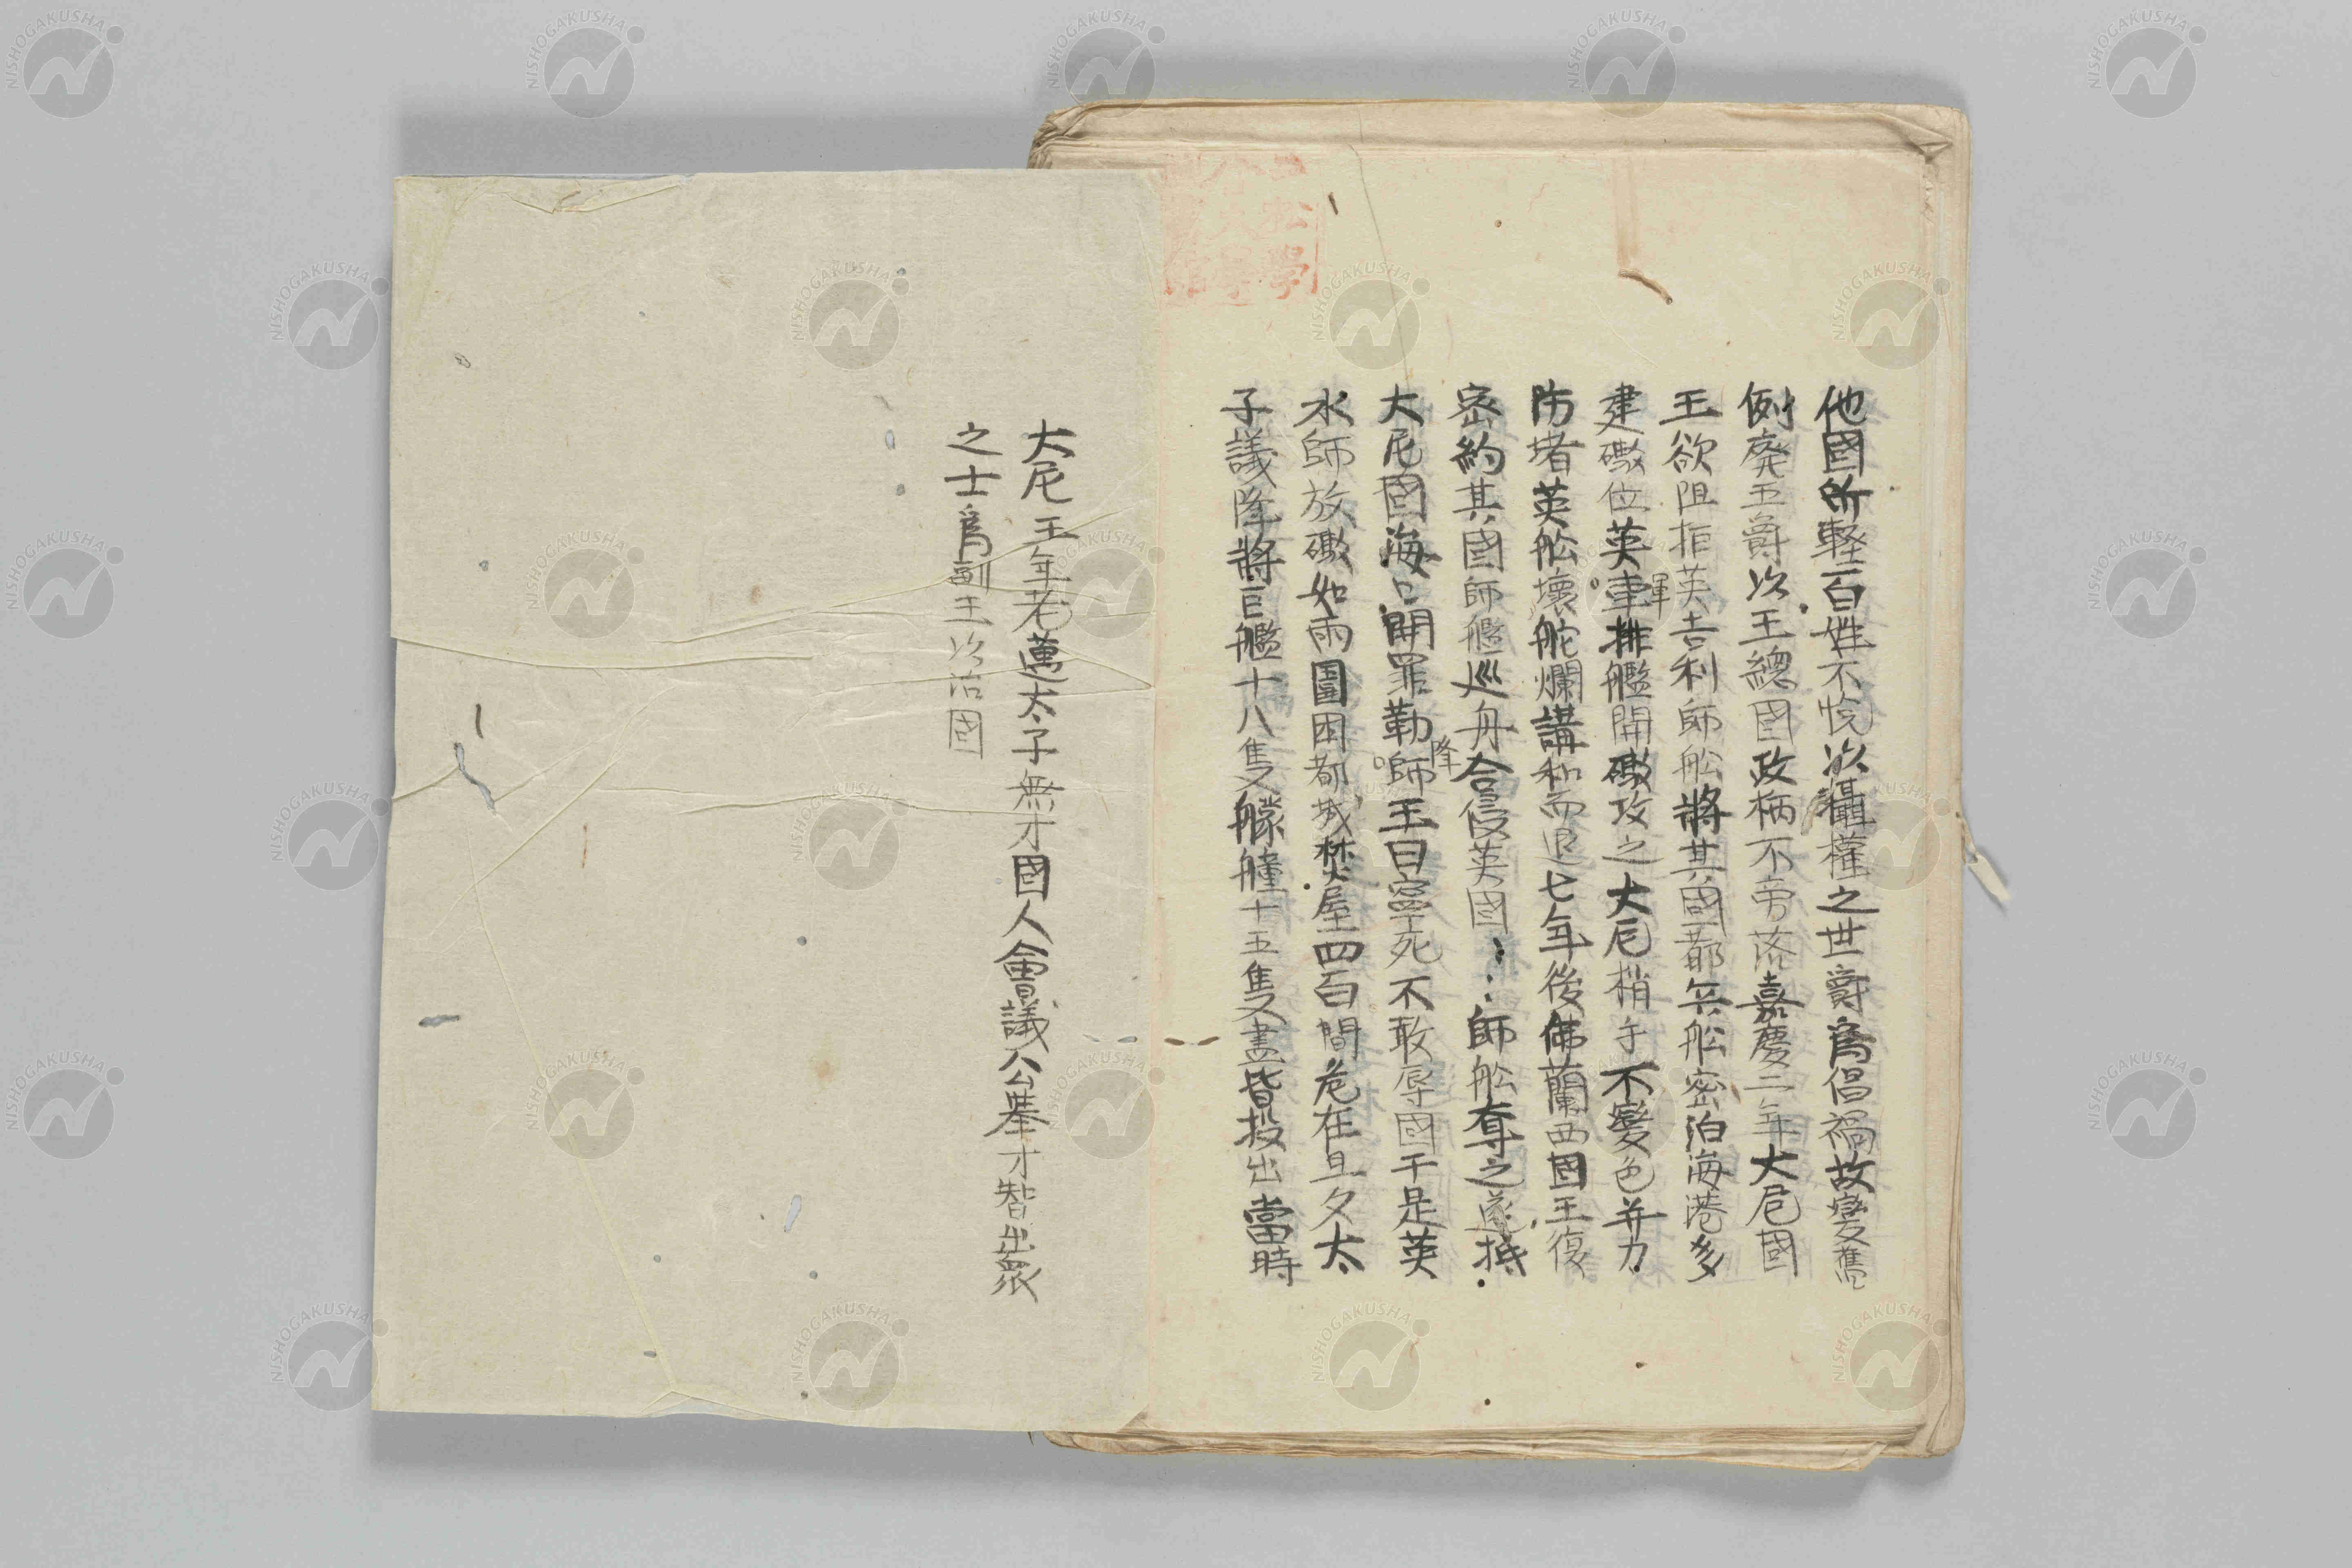 他國所輕百姓不悅以攝權之世爵爲倡禍故變舊
例廃五爵以王總國政柄不旁落嘉慶二年大尼國
王欲阻拒英吉利師舩將其國都兵舩密泊海港多
建礮位英軍排艦開礮攻之大尼梢手不變色并力
揮
防堵英舩壞舵爛講和而退七年後佛蘭西國王復
密約其國師艦巡舟合侵英國師舩奪之遂抵
大尼國海口開罪勒師王曰寧死不敢辱國于是英
降
水師放礮如雨圍困都城焚屋四百間危在旦夕太
子議降將巨艦十八隻艨艟十五隻盡皆投出當時
大尼王年老邁太子無才國人會議公舉才智出衆
之士爲副王以治國
NISHOGAKUSHA